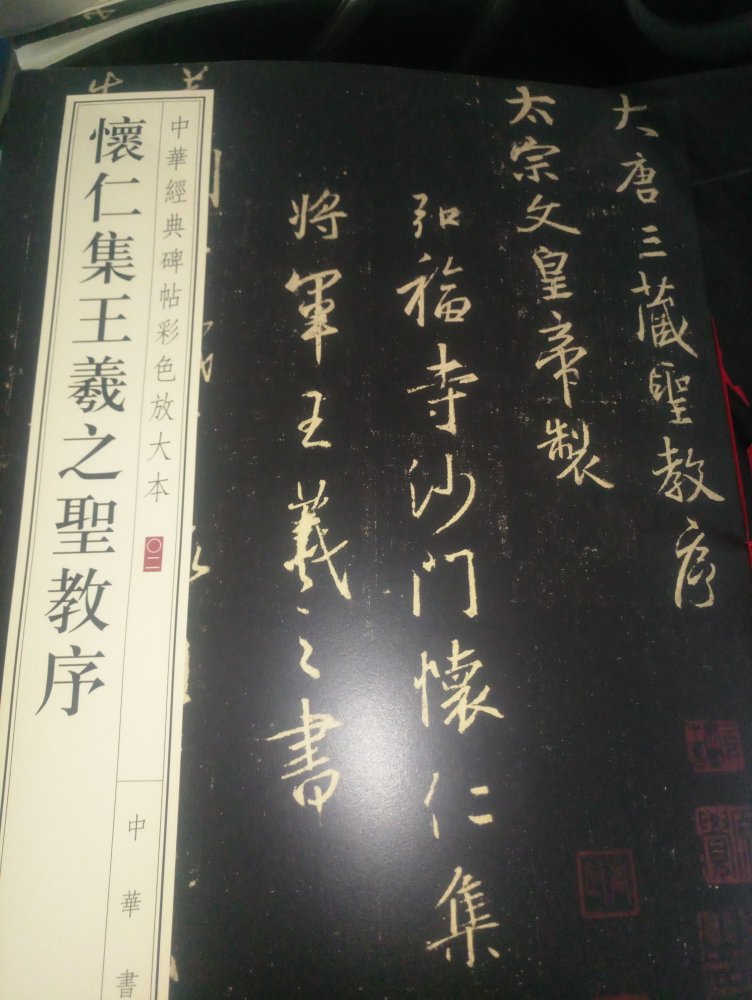 大唐三藏聖教序
太宗文皇帝製
弘福寺沙門懷仁集
將軍王羲之書
中華經典碑帖彩色放大本
〇二
懷仁集王羲之聖教序
中華書